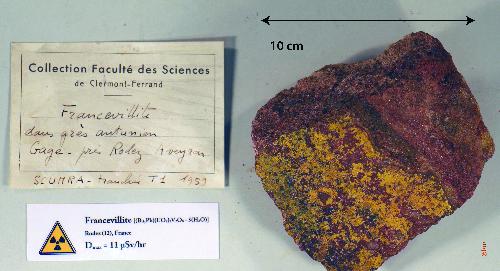 Collection Faculté des Sciences
de Clermont-Ferrand
Francevillite
dans grès autunien
Gage - près Rodez Aveyron
SCUMRA - T1 1959
10 cm
Francevillite [(Ba,Pb)(UO₂)₂V₂O₈ - 5(H₂O)]
Rodez (12), France
Dmax = 11 µSv/hr